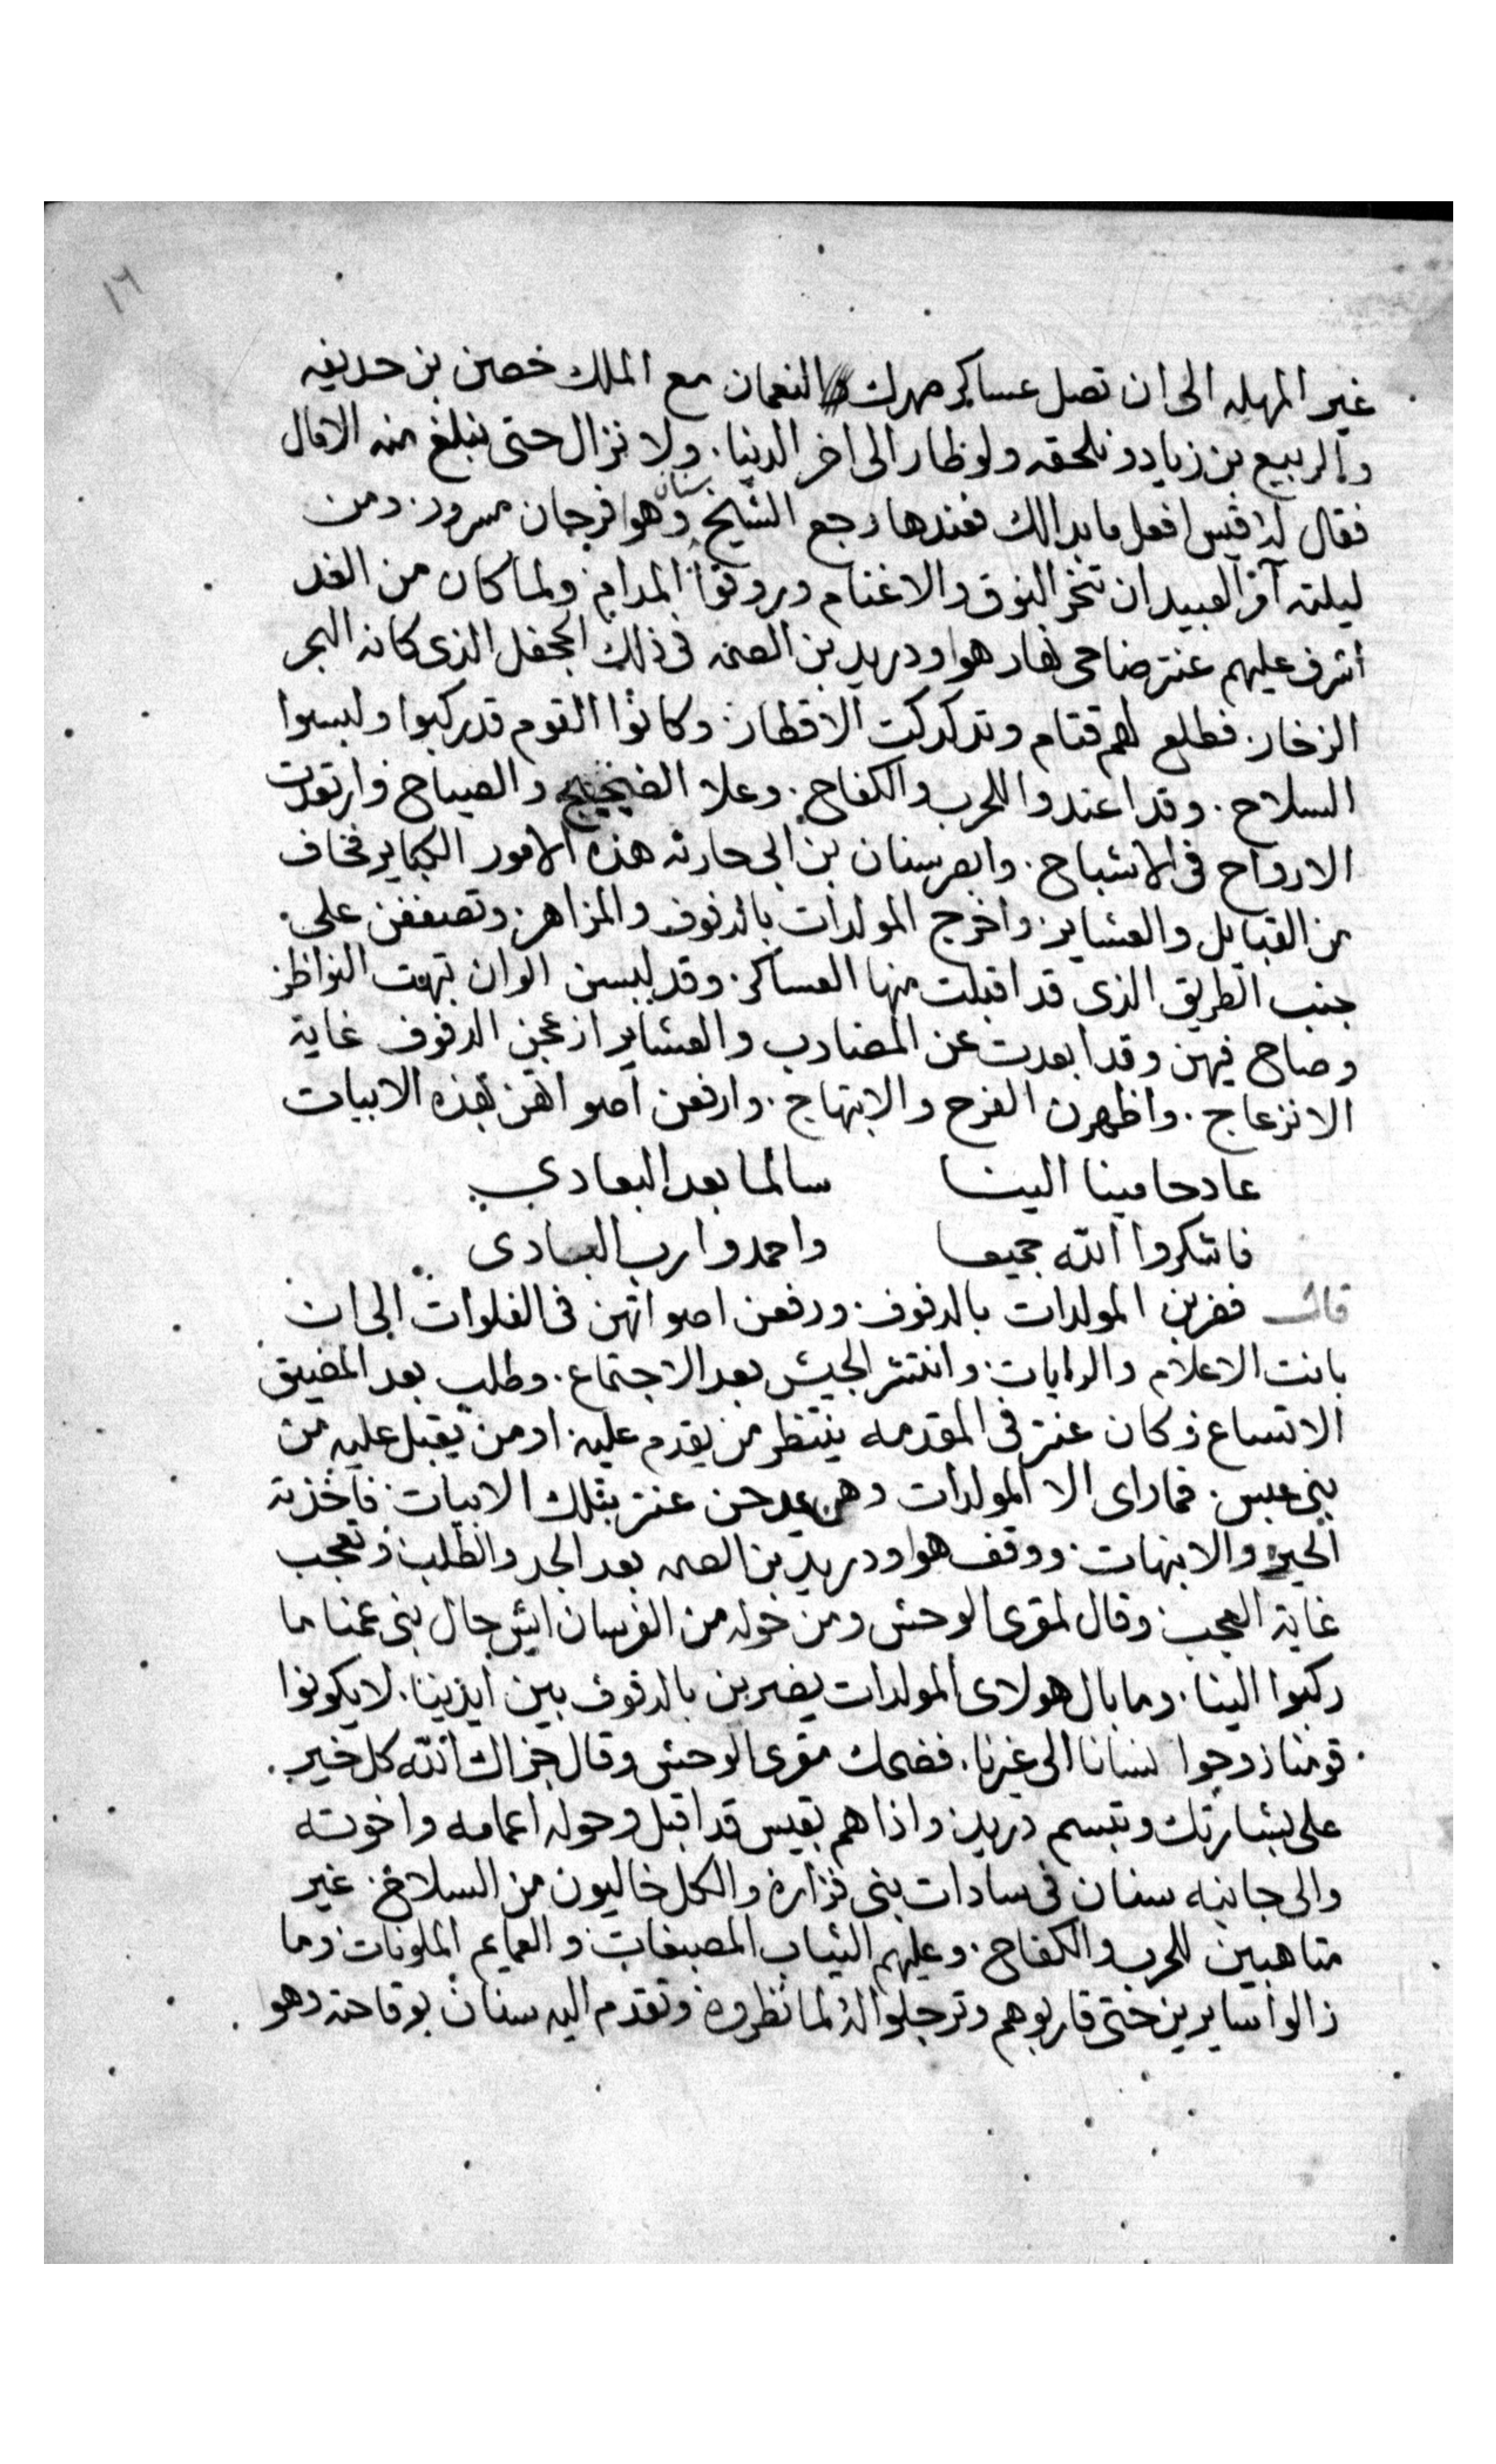 ١٦
غير المهله الى ان تصل عساكر صهرك النعمان مع الملك حصن بن حديفه
والربيع بن زياد ونلحقه ولو طار الى اخر الدنيا. ولا نزال حتى نبلغ منه الامال
فقال له قيس افعل ما بدا لك فعندها رجع الشيخ سنان وهوا فرحان مسرور. ومن
ليلته آمر العبيد ان تنحر النوق والاغنام ويروقوا المدام ولما كان من الغد
اشرف عليهم عنتر ضاحى نهار هوا ودريد بن الصمه فى ذلك الجحفل الذى كانه البحر
الزخار. فطلع لهم قتام وتدكدكت الاقطار. وكانوا القوم قد ركبوا ولبسوا
السلاح. وقد اعتدوا للحرب والكفاح. وعلا الضجيج والصياح وارتعدت
الارواح فى الاشباح. وابصر سنان بن ابى حارثه هذه الامور الكباير فخاف
من القبايل والعشاير. واخرج المولدات بالدفوف والمزاهر. وتصففن على
جنب الطريق الذى قد اقبلت منها العساكر. وقد لبسن الوان تبهت النواظر
وصاح فيهن وقد ابعدت عن المضارب والعشاير ازعجن الدفوف غاية
الانزعاج. واظهرن الفرح والابتهاج. وارفعن اصواتهن بهذه الابيات
عاد حامينا الينا سالما بعد البعادي
فاشكروا الله جميعا واحمدوا رب العبادى
قال فضربن المولدات بالدفوف. ورفعن اصواتهن فى الفلوات الى ان
بانت الاعلام والرايات. وانتشر الجيش بعد الاجتماع. وطلب بعد المضيق
الاتساع وكان عنتر فى المقدمه ينتظر من يقدم عليه. او من يقبل عليه من
بنى عبس. فما راى الا المولدات وهن يمدحن عنتر بتلك الابيات. فاخذته
الحيره والانبهات. ووقف هوا ودريد بن الصمه بعد الجد والطلب وتعجب
غاية العجب. وقال لمقرى الوحش ومن حوله من الفرسان ايش حال بنى عمنا ما
ركبوا الينا. وما بال هولاى المولدات يضربن بالدفوف بين ايدينا. لا يكونوا
قومنا زوجوا نسانا الى غيرنا. فضحك مقرى الوحش وقال جزاك الله كل خير.
على بشارتك وتبسم دريد. واذا هم بقيس قد اقبل وحوله اعمامه واخوته
والى جانبه سنان فى سادات بنى فزاره والكل خاليون من السلاح. غير
متاهبين للحرب والكفاح. وعليهم الثياب المصبغات. والعمايم الملونات. وما
زالوا سايرين حتى قاربوهم وترجلوا له لما نظروه وتقدم اليه سنان بوقاحته وهو